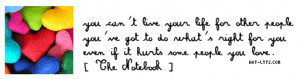 you can't live your life for other people
you've got to do what's right for you
even if it hurts some people you love.
[ The Notebook ]
HOT-LYTS.COM